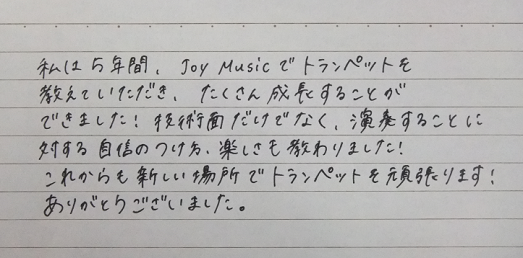 私は5年間、Joy Musicでトランペットを
教えていただき、たくさん成長することが
できました！技術面だけでなく、演奏することに
対する自信のつけ方、楽しさも教わりました！
これからも新しい場所でトランペットを頑張ります！
ありがとうございました。